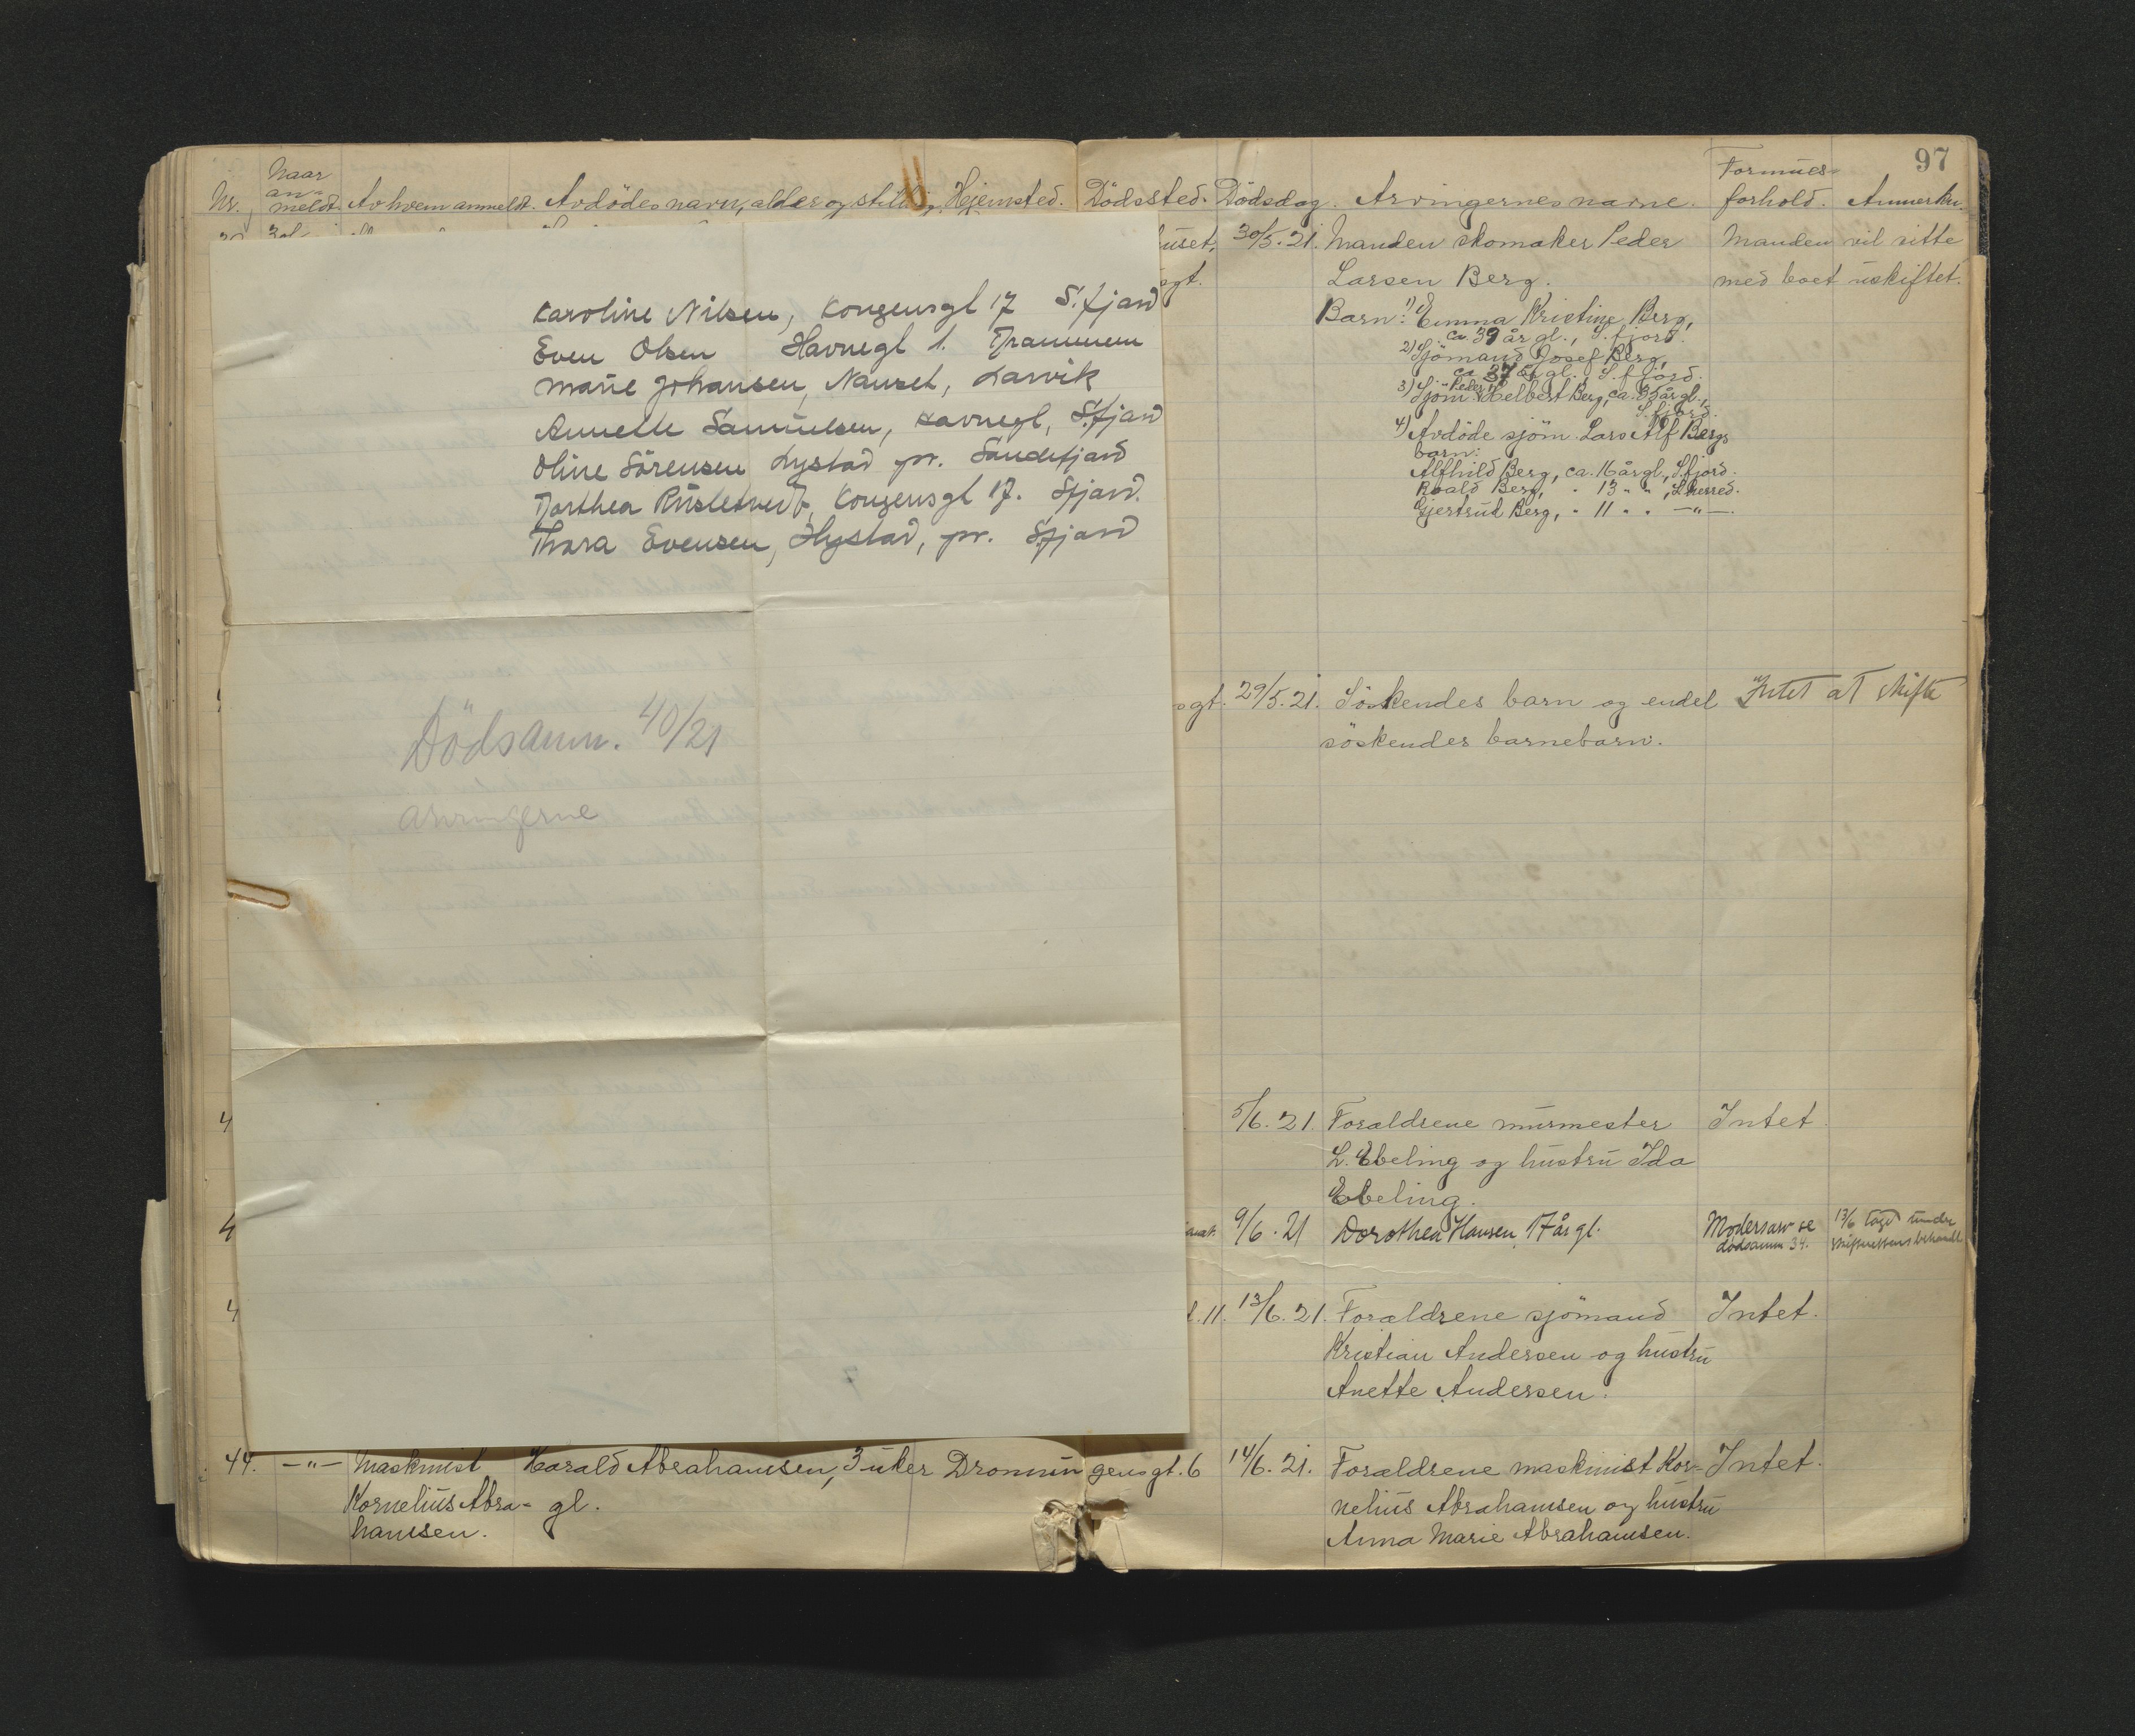 97
Nr. Naar anmeldt. Av hvem anmeldt. Avdödes navn, alder og stilling. Hjemsted. Dödssted. Dödsdag. Arvingernes navne. Formues-forhold. Anmerkn.
Karoline Nilsen, Kongensgt 17 S.fjord
Even Olsen Havnegt 1. Drammen
Marie Johansen, Nanset, Larvik
Annette Samuelsen, Havnegt, S.fjord
Oline Sörensen Lystad pr. Sandefjord
Dorthea Kongensgt 17. Sfjord.
Thora Evensen, Hystad, pr. Sfjord
Dödsanm. 40/21
arvingerne
30/5. 21. Manden skomaker Peder Manden vil sitte
Larsen Berg. med boet uskiftet.
Barn: 1) Emma Kristine Berg,
ca. 39 år gl., S.fjord.
2) Sjömand Josef Berg,
ca 37 år gl., S.fjord.
3) Sjöm. Peder Helbert Berg, ca. 35 år gl.,
S.fjord.
4) Avdöde sjöm. Lars Alf Bergs
barn:
Alfhild Berg, ca. 16 år gl., S.fjord.
Roald Berg, " 13 " " , S.herred.
Gjertrud Berg, " 11 " " —"—.
sgt. 29/5. 21. Söskendes barn og endel Intet at skifte
söskendes barnebarn.
4 5/6. 21. Forældrene murmester Intet.
L. Ebeling og hustru Ida
Ebeling.
4 9/6. 21 Dorothea Hansen 17 år gl. Modersarv se 13/6 tagt under
dödsanm 34. skifterettens behandl.
4 t. 11. 13/6. 21. Forældrene sjömand Intet.
Kristian Andersen og hustru
Anette Andersen.
44. —"— Maskinist Harald Abrahamsen, 3 uker Dronningensgt. 6 14/6. 21. Forældrene maskinist Kor- Intet.
Kornelius Abra- gl. nelius Abrahamsen og hustru
hamsen. Anna Marie Abrahamsen.